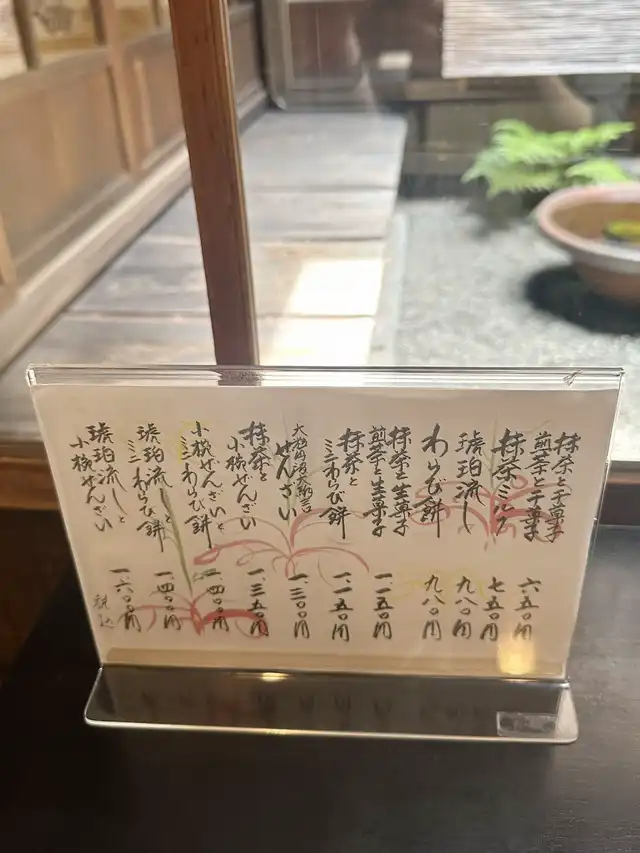 抹茶と干菓子
煎茶と干菓子
六五〇円
抹茶ミルク
七五〇円
琥珀流し
九八〇円
わらび餅
九八〇円
抹茶と生菓子
煎茶と生菓子
一一五〇円
抹茶と
ミニわらび餅
一、一五〇円
大極丹波大納言
ぜんざい
一、三〇〇円
抹茶と
小椀ぜんざい
一、三五〇円
小椀ぜんざいと
ミニわらび餅
一、四〇〇円
琥珀流しと
ミニわらび餅
一、四〇〇円
琥珀流しと
小椀ぜんざい
一、六〇〇円
税込